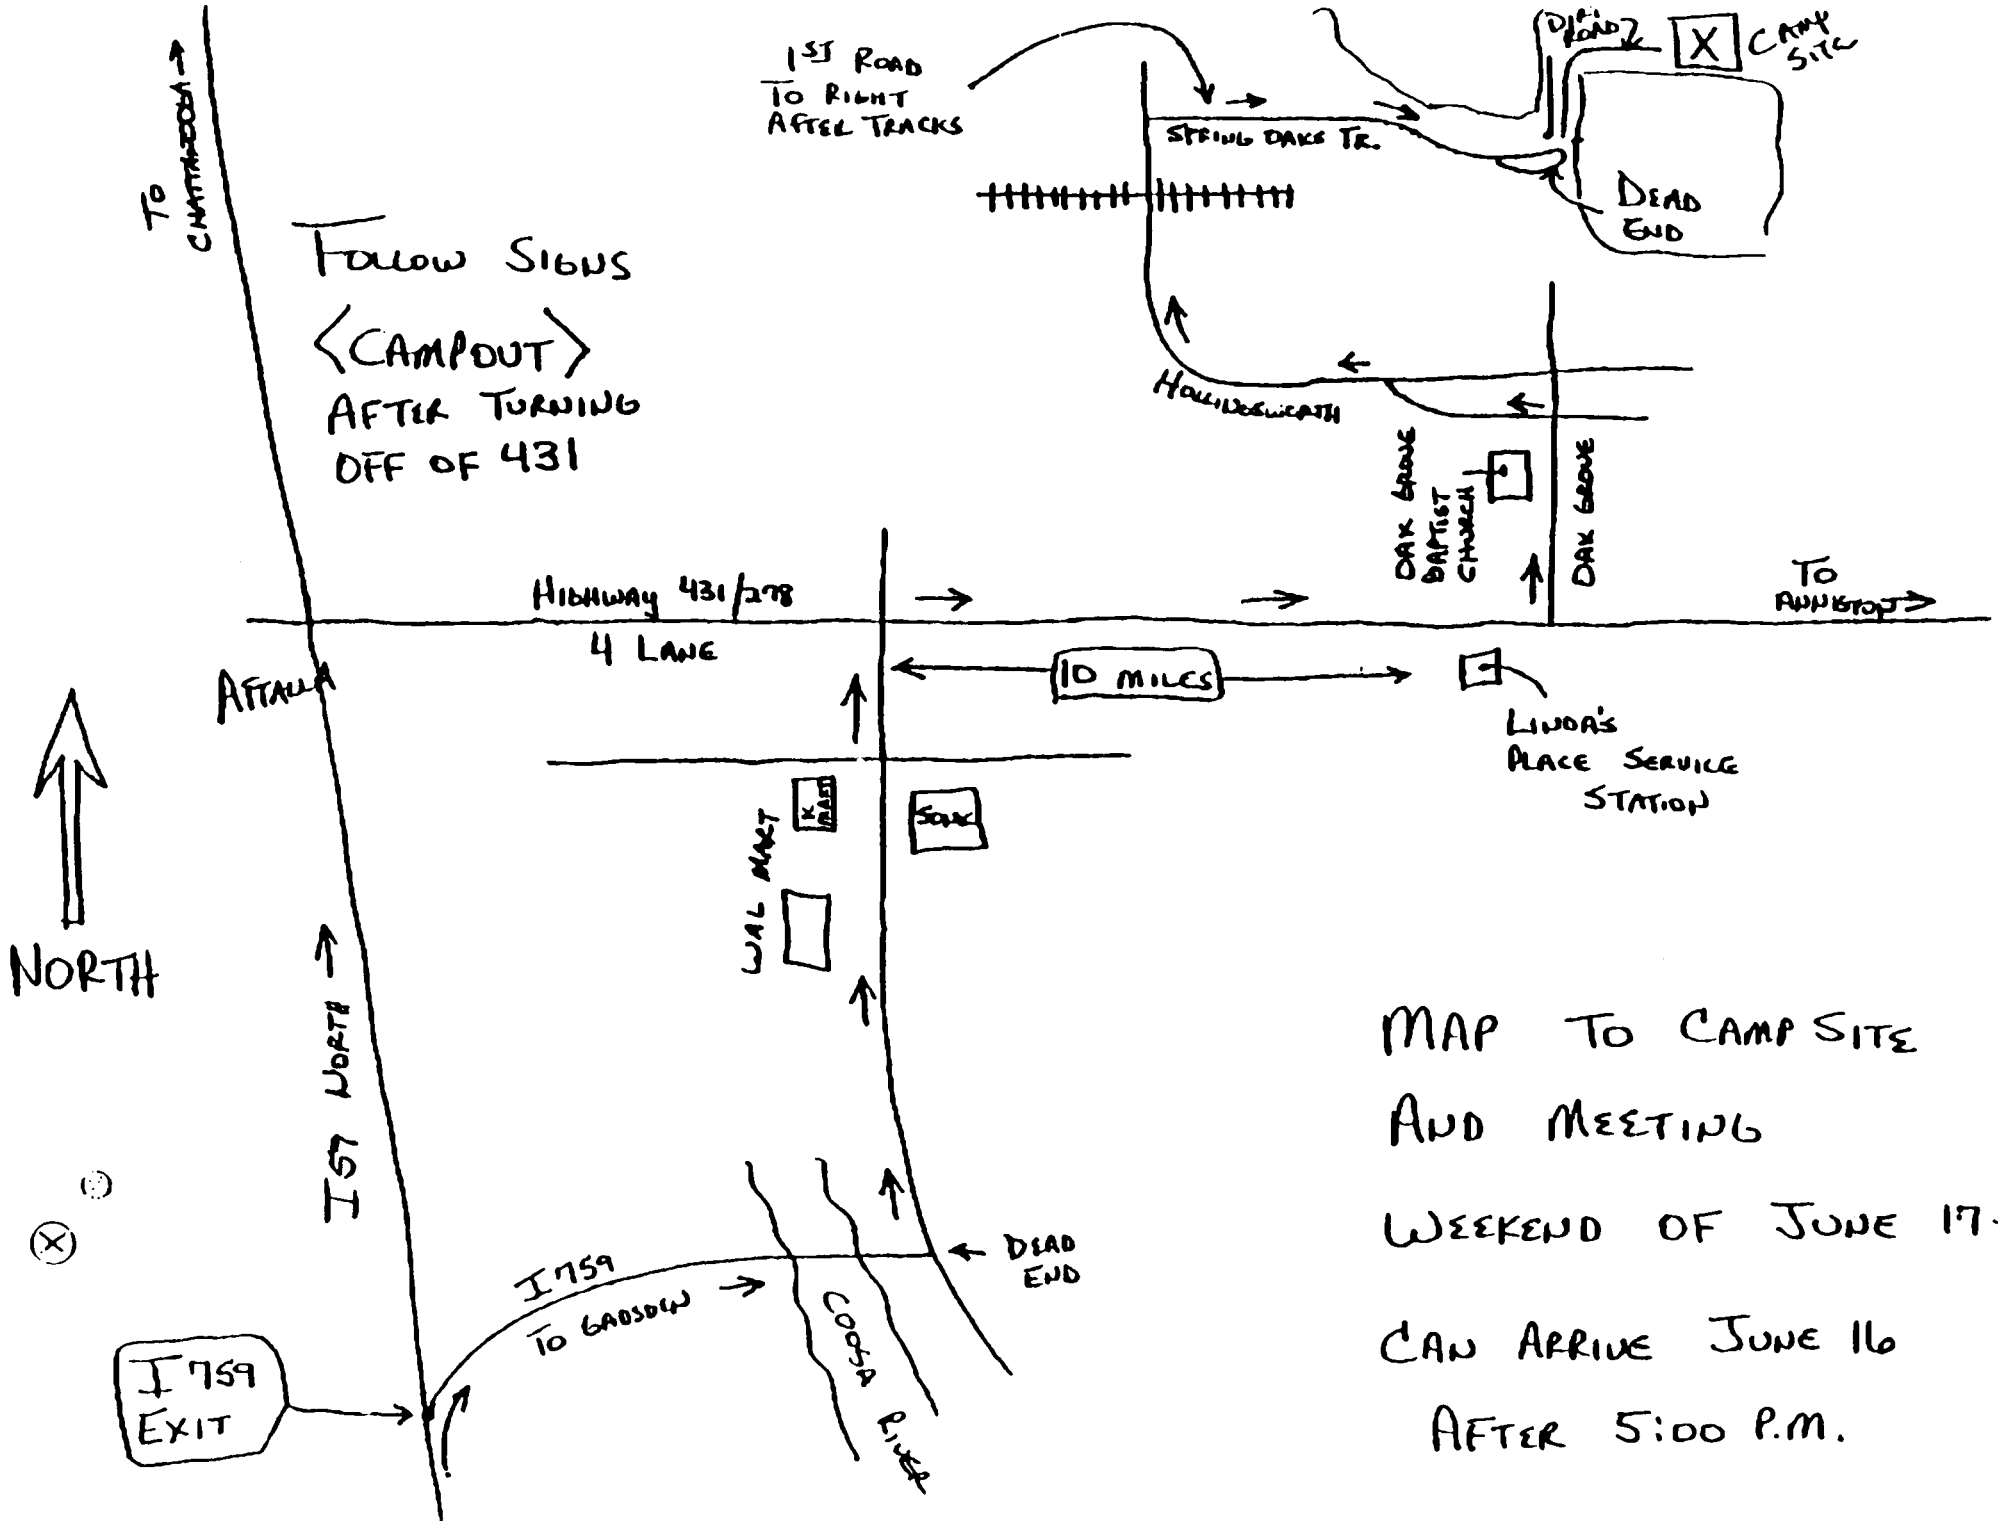 TO
CHATTANOOGA →
1ST ROAD
TO RIGHT
AFTER TRACKS
SPRING OAKS TR.
DIRT
ROAD
X
CAMP
SITE
DEAD
END
FOLLOW SIGNS
<CAMPOUT>
AFTER TURNING
OFF OF 431
HOLLINGSWORTH
OAK GROVE
BAPTIST
CHURCH
OAK GROVE
HIGHWAY 431/278
4 LANE
TO
ANNISTON →
ATTALLA
10 MILES
LINDA'S
PLACE SERVICE
STATION
K
MART
SONIC
WAL MART
NORTH
I 59 NORTH →
MAP TO CAMP SITE
AND MEETING
WEEKEND OF JUNE 17.
CAN ARRIVE JUNE 16
AFTER 5:00 P.M.
I 759
TO GADSDEN
DEAD
END
COOSA RIVER
I 759
EXIT
X